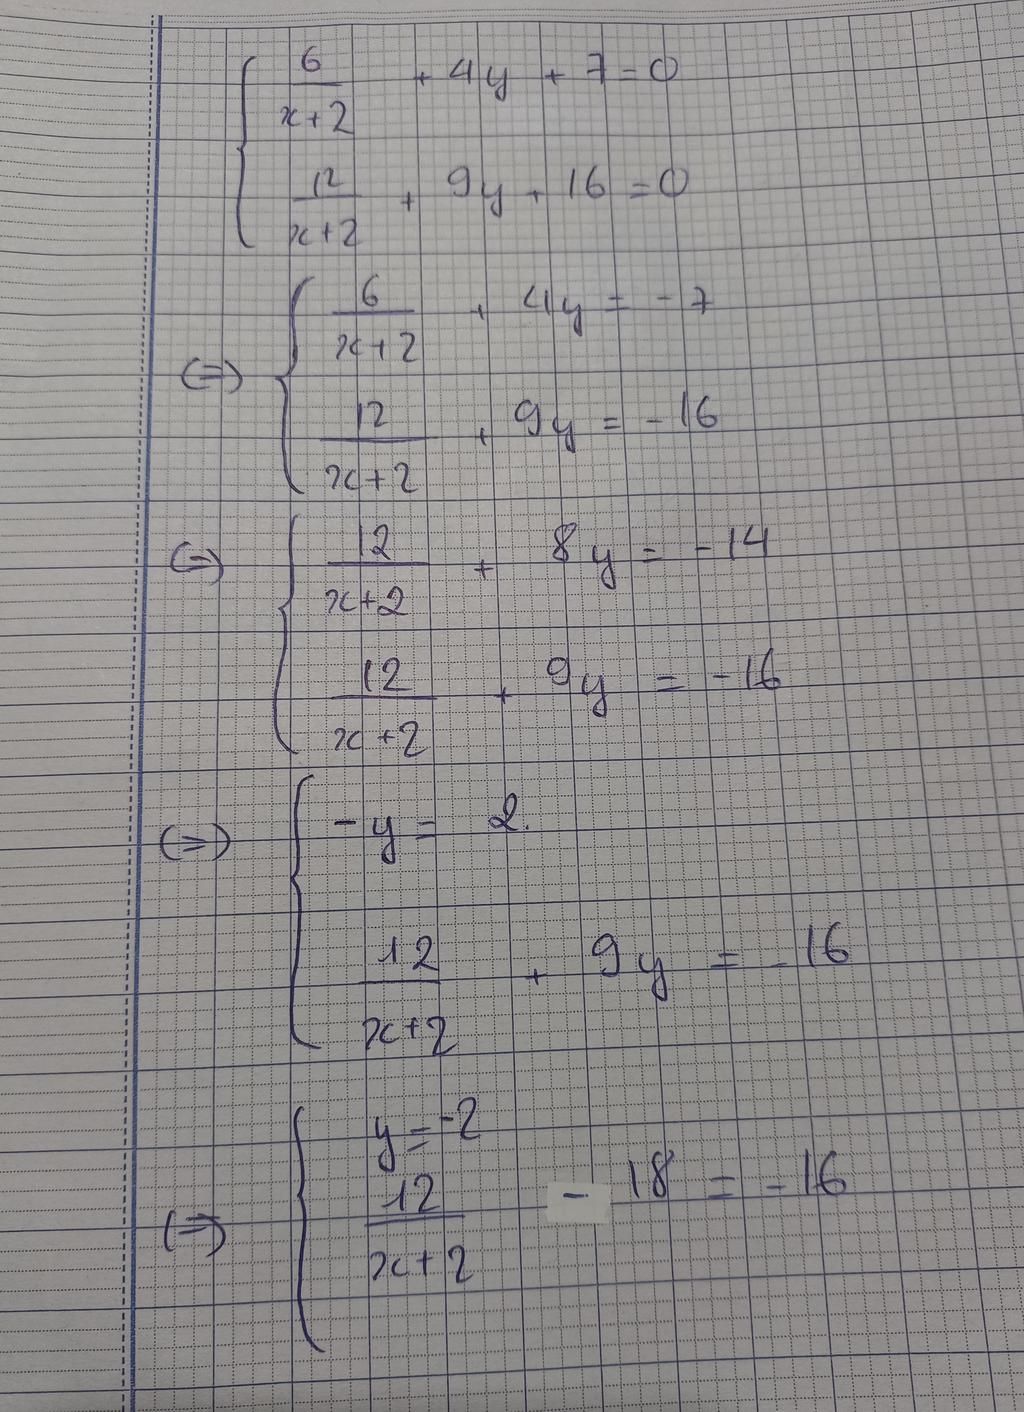 6/(x+2) + 4y + 7 = 0
12/(x+2) + 9y + 16 = 0
(=) 6/(x+2) + 4y = -7
12/(x+2) + 9y = -16
(=) 12/(x+2) + 8y = -14
12/(x+2) + 9y = -16
(=) -y = 2.
12/(x+2) + 9y = -16
(=) y = -2
12/(x+2) - 18 = -16